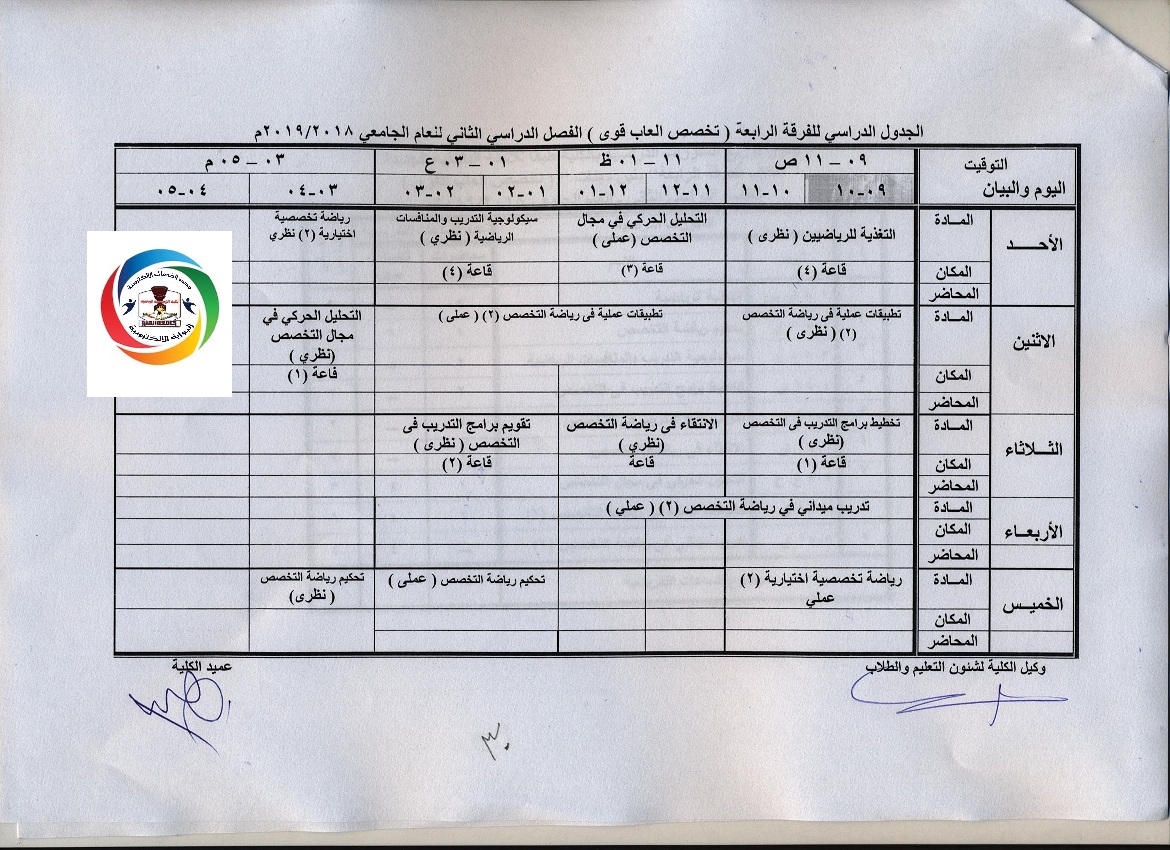 الجدول الدراسي للفرقة الرابعة ( تخصص العاب قوى ) الفصل الدراسي الثاني للعام الجامعي ٢٠١٩/٢٠١٨م
التوقيت
اليوم والبيان
٠٩ – ١١ ص
١١ – ٠١ ظ
٠١ – ٠٣ ع
٠٣ – ٠٥ م
٠٩-١٠
١٠-١١
١١-١٢
١٢-٠١
٠١-٠٢
٠٢-٠٣
٠٣-٠٤
٠٤-٠٥
الأحـــد
المادة
التغذية للرياضيين ( نظرى )
التحليل الحركي في مجال
التخصص (عملى )
سيكولوجية التدريب والمنافسات
الرياضية ( نظري )
رياضة تخصصية
اختيارية (٢) نظري
المكان
قاعة (٤)
قاعة (٣)
قاعة (٤)
المحاضر
الاثنين
المادة
تطبيقات عملية فى رياضة التخصص
(٢) ( نظرى )
تطبيقات عملية فى رياضة التخصص (٢) ( عملى )
التحليل الحركي في
مجال التخصص
(نظري )
المكان
قاعة (١)
المحاضر
الثـــلاثاء
المادة
تخطيط برامج التدريب فى التخصص
(نظرى )
الانتقاء فى رياضة التخصص
(نظري )
تقويم برامج التدريب فى
التخصص ( نظرى )
المكان
قاعة (١)
قاعة
قاعة (٢)
المحاضر
الأربعـاء
المادة
تدريب ميداني في رياضة التخصص (٢) ( عملي )
المكان
المحاضر
الخميــس
المادة
رياضة تخصصية اختيارية (٢)
عملي
تحكيم رياضة التخصص ( عملى )
تحكيم رياضة التخصص
( نظرى )
المكان
المحاضر
وكيل الكلية لشئون التعليم والطلاب
عميد الكلية